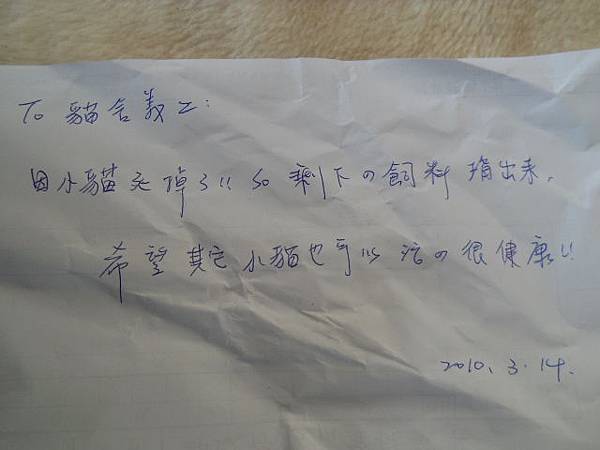 To 貓舍義工:
因小貓死掉了!! so 剩下の飼料捐出來.
希望其它小貓也可以活の很健康!!
2010.3.14.